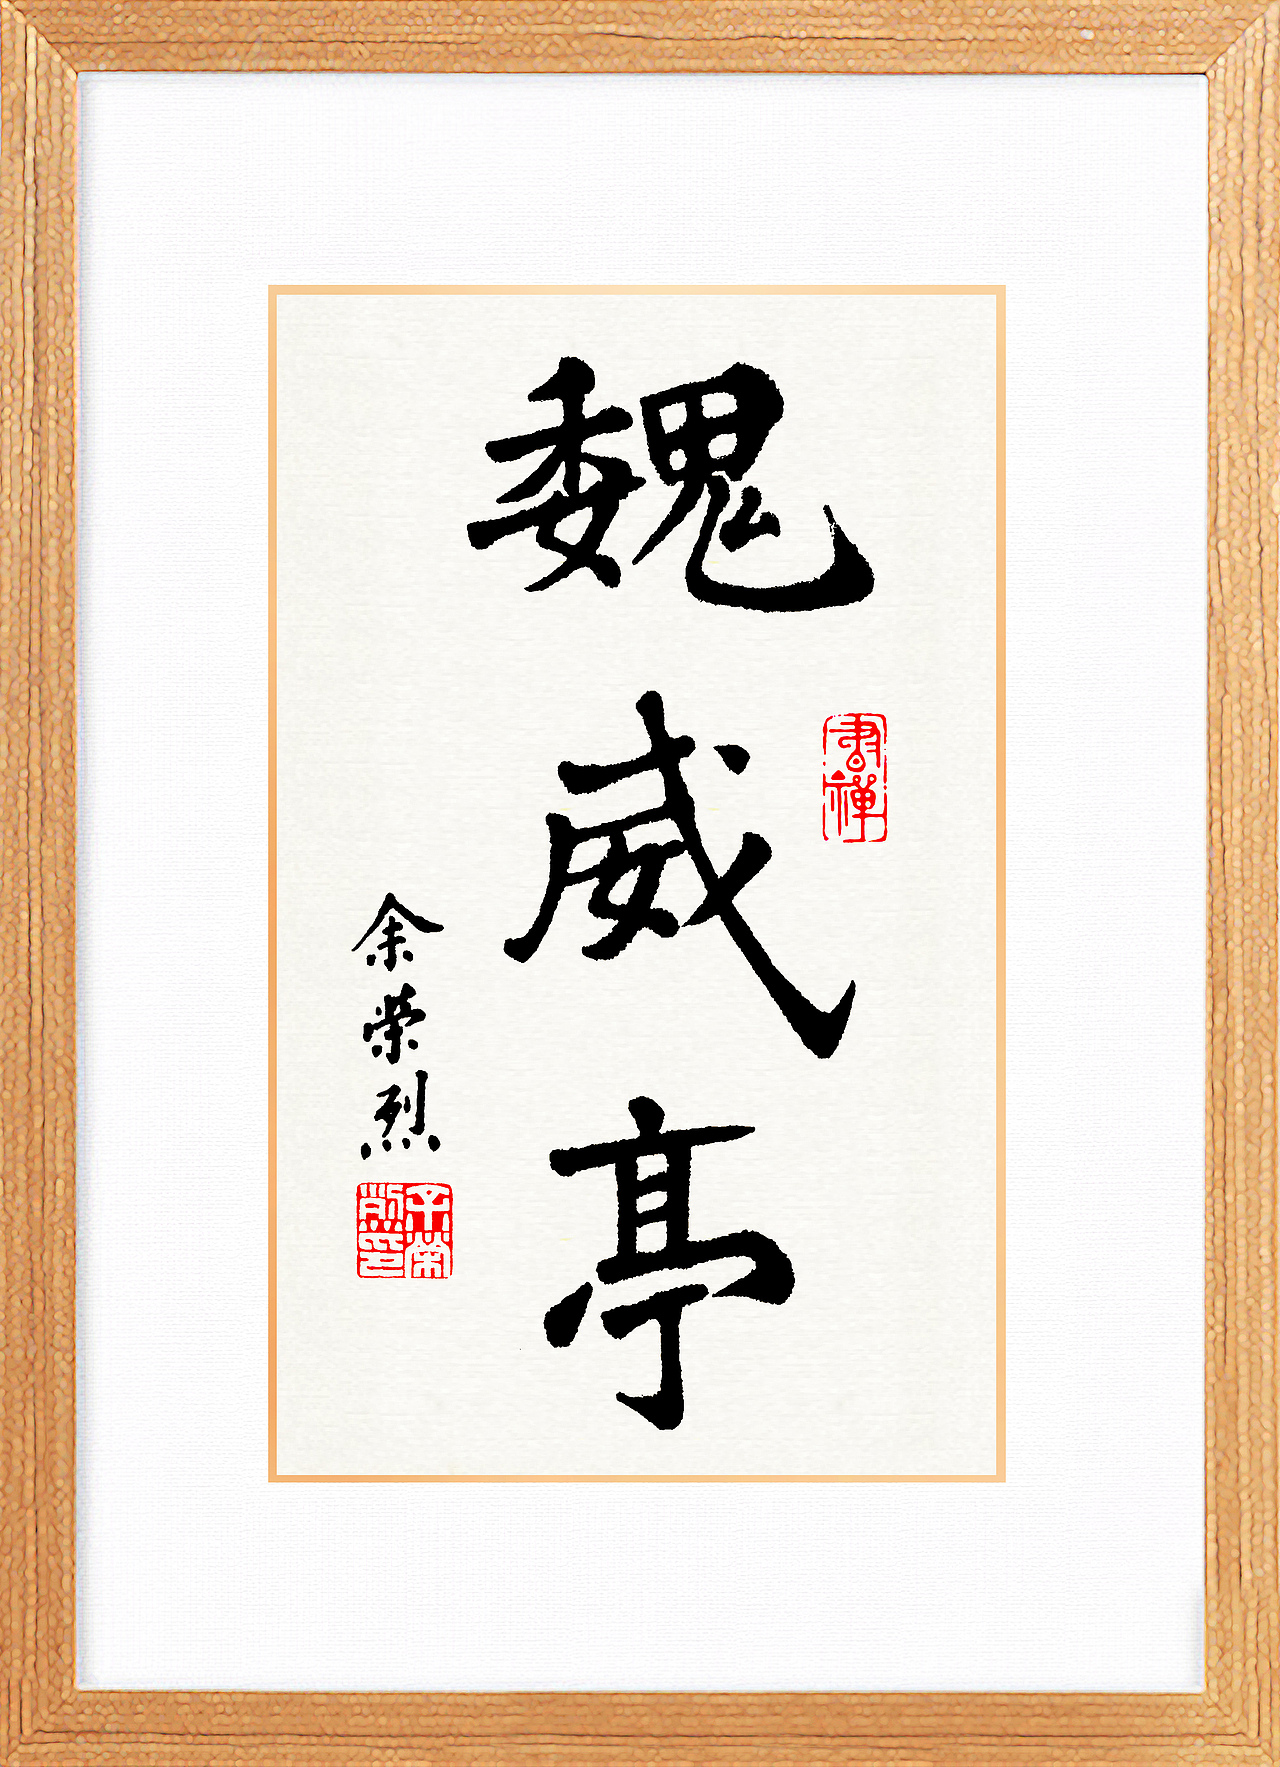 魏威亭
書禪
余荣烈
余荣烈印